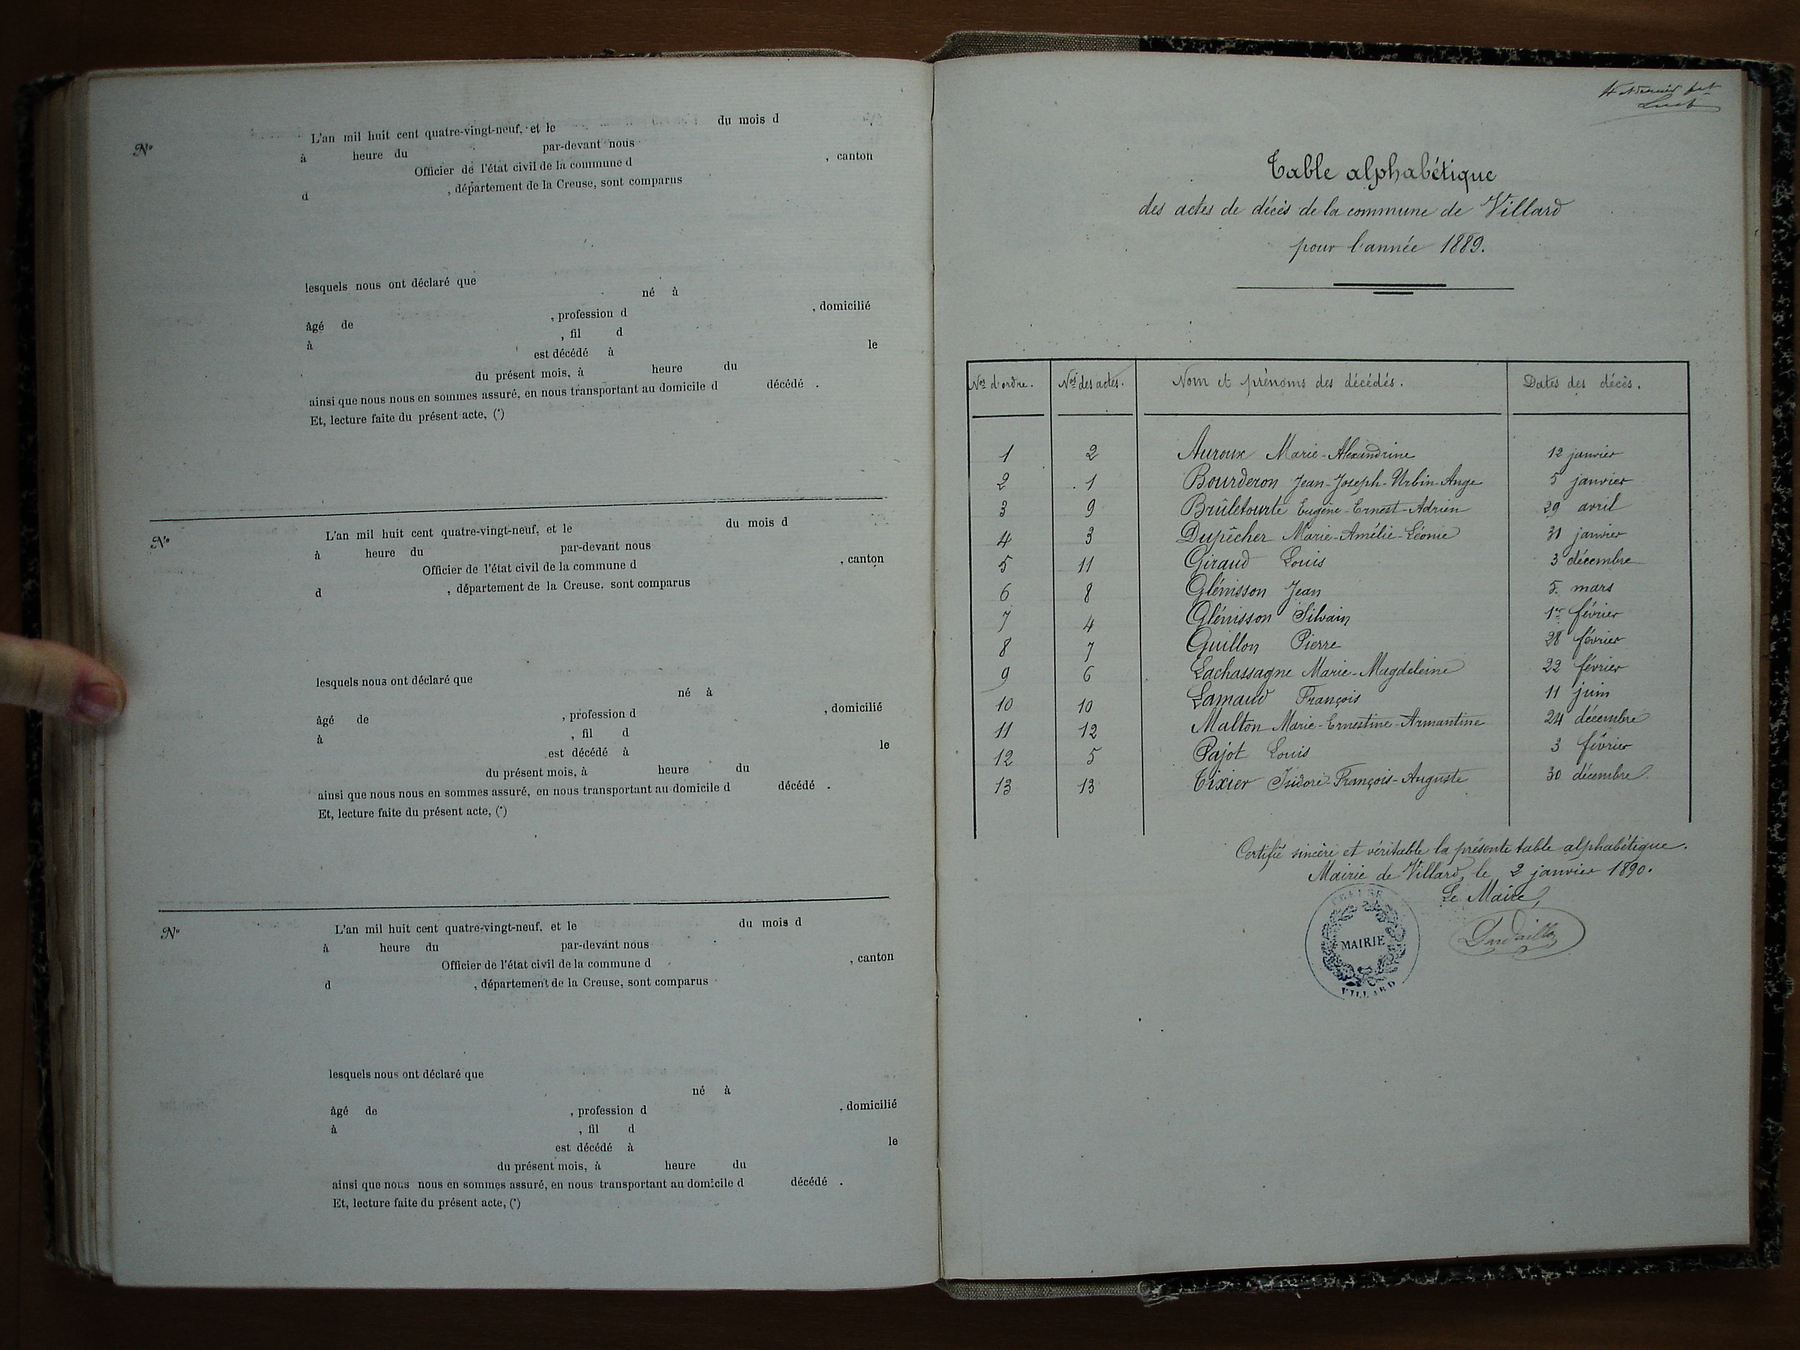 N°
L'an mil huit cent quatre-vingt-neuf, et le du mois d
à heure du par-devant nous
Officier de l'état civil de la commune d , canton
d , département de la Creuse, sont comparus
lesquels nous ont déclaré que
né à
âgé de , profession d , domicilié
à , fil d
est décédé à le
du présent mois, à heure du
ainsi que nous nous en sommes assuré, en nous transportant au domicile d décédé .
Et, lecture faite du présent acte, (*)
N°
L'an mil huit cent quatre-vingt-neuf, et le du mois d
à heure du par-devant nous
Officier de l'état civil de la commune d , canton
d , département de la Creuse, sont comparus
lesquels nous ont déclaré que
né à
âgé de , profession d , domicilié
à , fil d
est décédé à le
du présent mois, à heure du
ainsi que nous nous en sommes assuré, en nous transportant au domicile d décédé .
Et, lecture faite du présent acte, (*)
N°
L'an mil huit cent quatre-vingt-neuf, et le du mois d
à heure du par-devant nous
Officier de l'état civil de la commune d , canton
d , département de la Creuse, sont comparus
lesquels nous ont déclaré que
né à
âgé de , profession d , domicilié
à , fil d
est décédé à le
du présent mois, à heure du
ainsi que nous nous en sommes assuré, en nous transportant au domicile d décédé .
Et, lecture faite du présent acte, (*)
Table alphabétique
des actes de décès de la commune de Villard
pour l'année 1889.
Nos d'ordre. Nos des actes. Nom et prénoms des décédés. Dates des décès.
1 2 Auroux Marie-Alexandrine 12 janvier
2 1 Bourderon Jean-Joseph-Urbin-Ange 5 janvier
3 9 Brûletourte Eugène-Ernest-Adrien 29 avril
4 3 Dupêcher Marie-Amélie-Léonie 31 janvier
5 11 Giraud Louis 3 décembre
6 8 Glénisson Jean 5 mars
7 4 Glénisson Silvain 1er février
8 7 Guillon Pierre 28 février
9 6 Lachassagne Marie-Magdeleine 22 février
10 10 Lamaud François 11 juin
11 12 Malton Marie-Ernestine-Armantine 24 décembre
12 5 Pajot Louis 3 février
13 13 Tixier Isidore-François-Auguste 30 décembre
Certifié sincère et véritable la présente table alphabétique.
Mairie de Villard, le 2 janvier 1890.
Le Maire,
CREUSE
MAIRIE
VILLARD